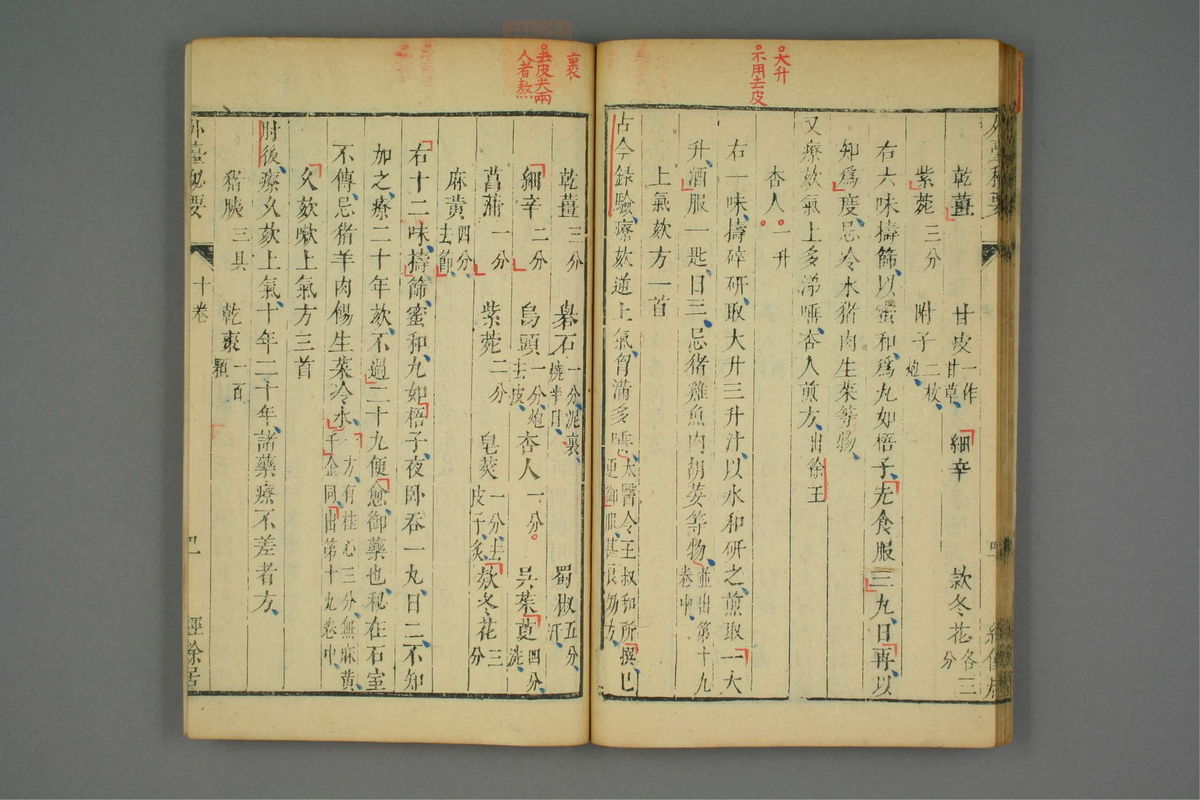 大升
不用去皮
乾薑 甘皮一作甘草 細辛 款冬花各三分
紫菀三分 附子二枚炮
右六味擣篩以蜜和為丸如梧子先食服三丸日再以
知為度忌冷水猪肉生菜等物
又療欬氣上多涕唾杏人煎方出徐王
杏人一升
右一味擣碎研取大升三升汁以水和研之煎取一大
升酒服一匙日三忌猪雞魚肉胡荽等物並出第十九卷中
上氣欬方一首
古今錄驗療欬逆上氣胷滿多唾太醫令王叔和所撰已更御服甚良効方
裹
去皮尖兩
人者熬
乾薑三分 礜石一分泥裹燒半日 蜀椒五分汗
細辛二分 烏頭一分炮去皮 杏人一分 吳茱萸四分洗
菖蒲一分 紫菀二分 皂莢一分去皮子炙 款冬花三分
麻黃四分去節
右十二味擣篩蜜和丸如梧子夜卧吞一丸日二不知
加之療二十年欬不過二十丸便愈御藥也秘在石室
不傳忌猪羊肉餳生菜冷水一方有桂心三分無麻黃千金同出第十九卷中
久欬嗽上氣方三首
肘後療久欬上氣十年二十年諸藥療不差者方
猪胰三具 乾棗一百顆
外臺秘要 十卷 經餘居